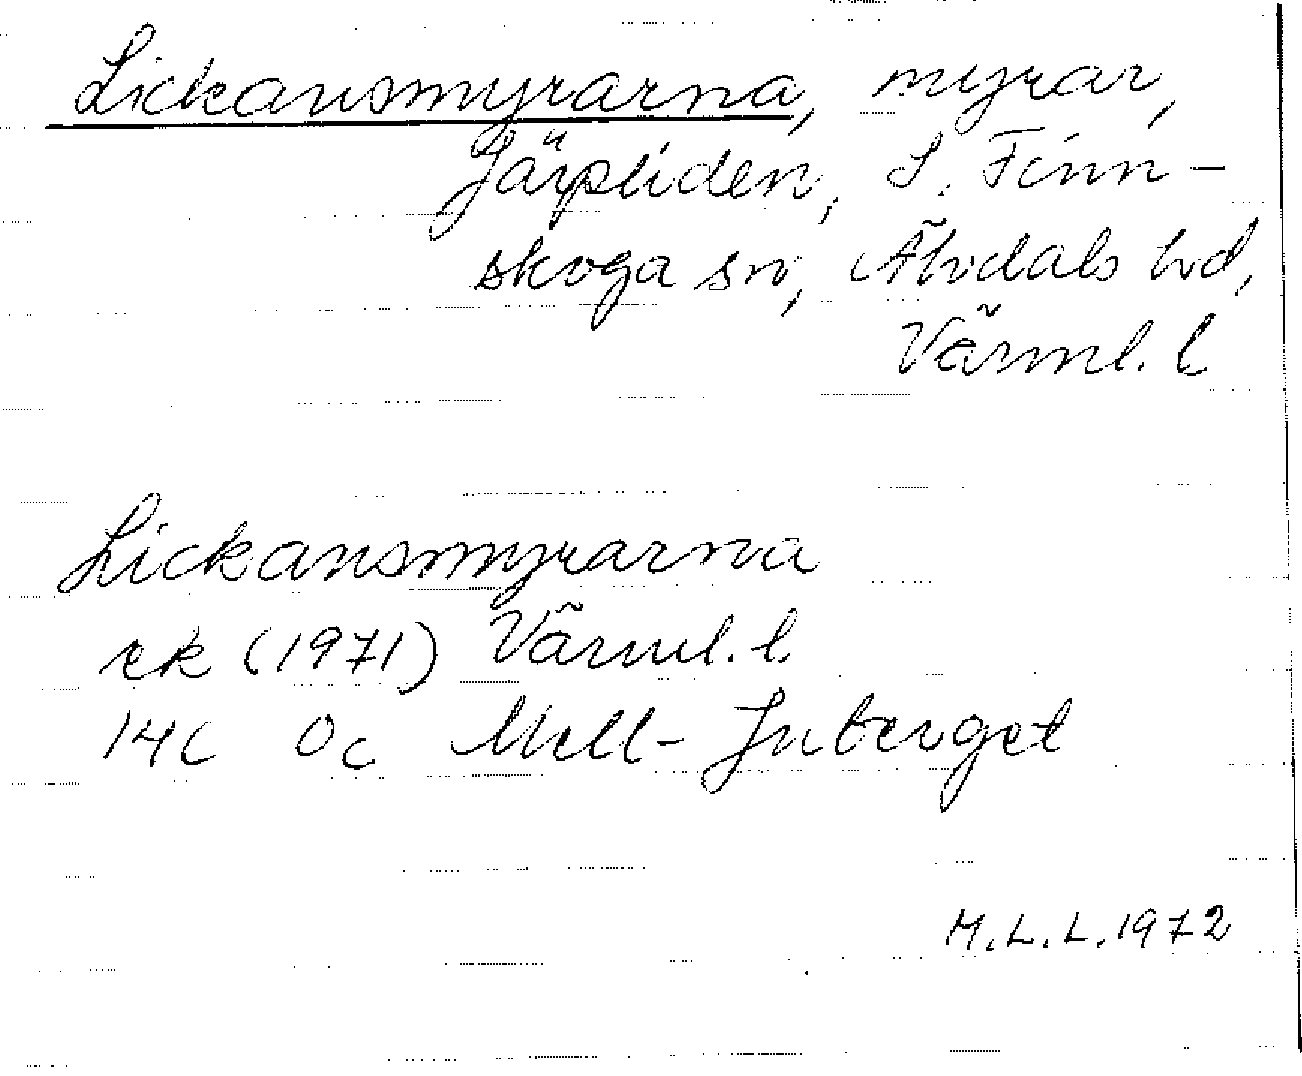 Lickansmyrarna, myrar,
Järpliden, S. Finn-
skoga sn, Älvdals hd,
Värml. l
Lickansmyrarna
rk (1971) Värml. l.
14c 0c Mell- Juberget
M.L.L. 1972